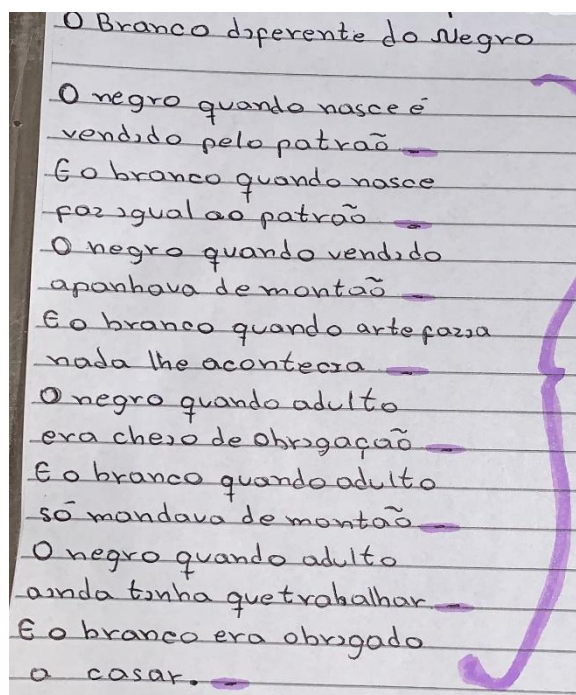 O Branco diferente do Negro
O negro quando nasce é
vendido pelo patrão
E o branco quando nasce
faz igual ao patrão
O negro quando vendido
apanhava de montão
E o branco quando arte fazia
nada lhe acontecia
O negro quando adulto
era cheio de obrigação
E o branco quando adulto
só mandava de montão
O negro quando adulto
ainda tinha que trabalhar
E o branco era obrigado
a casar.